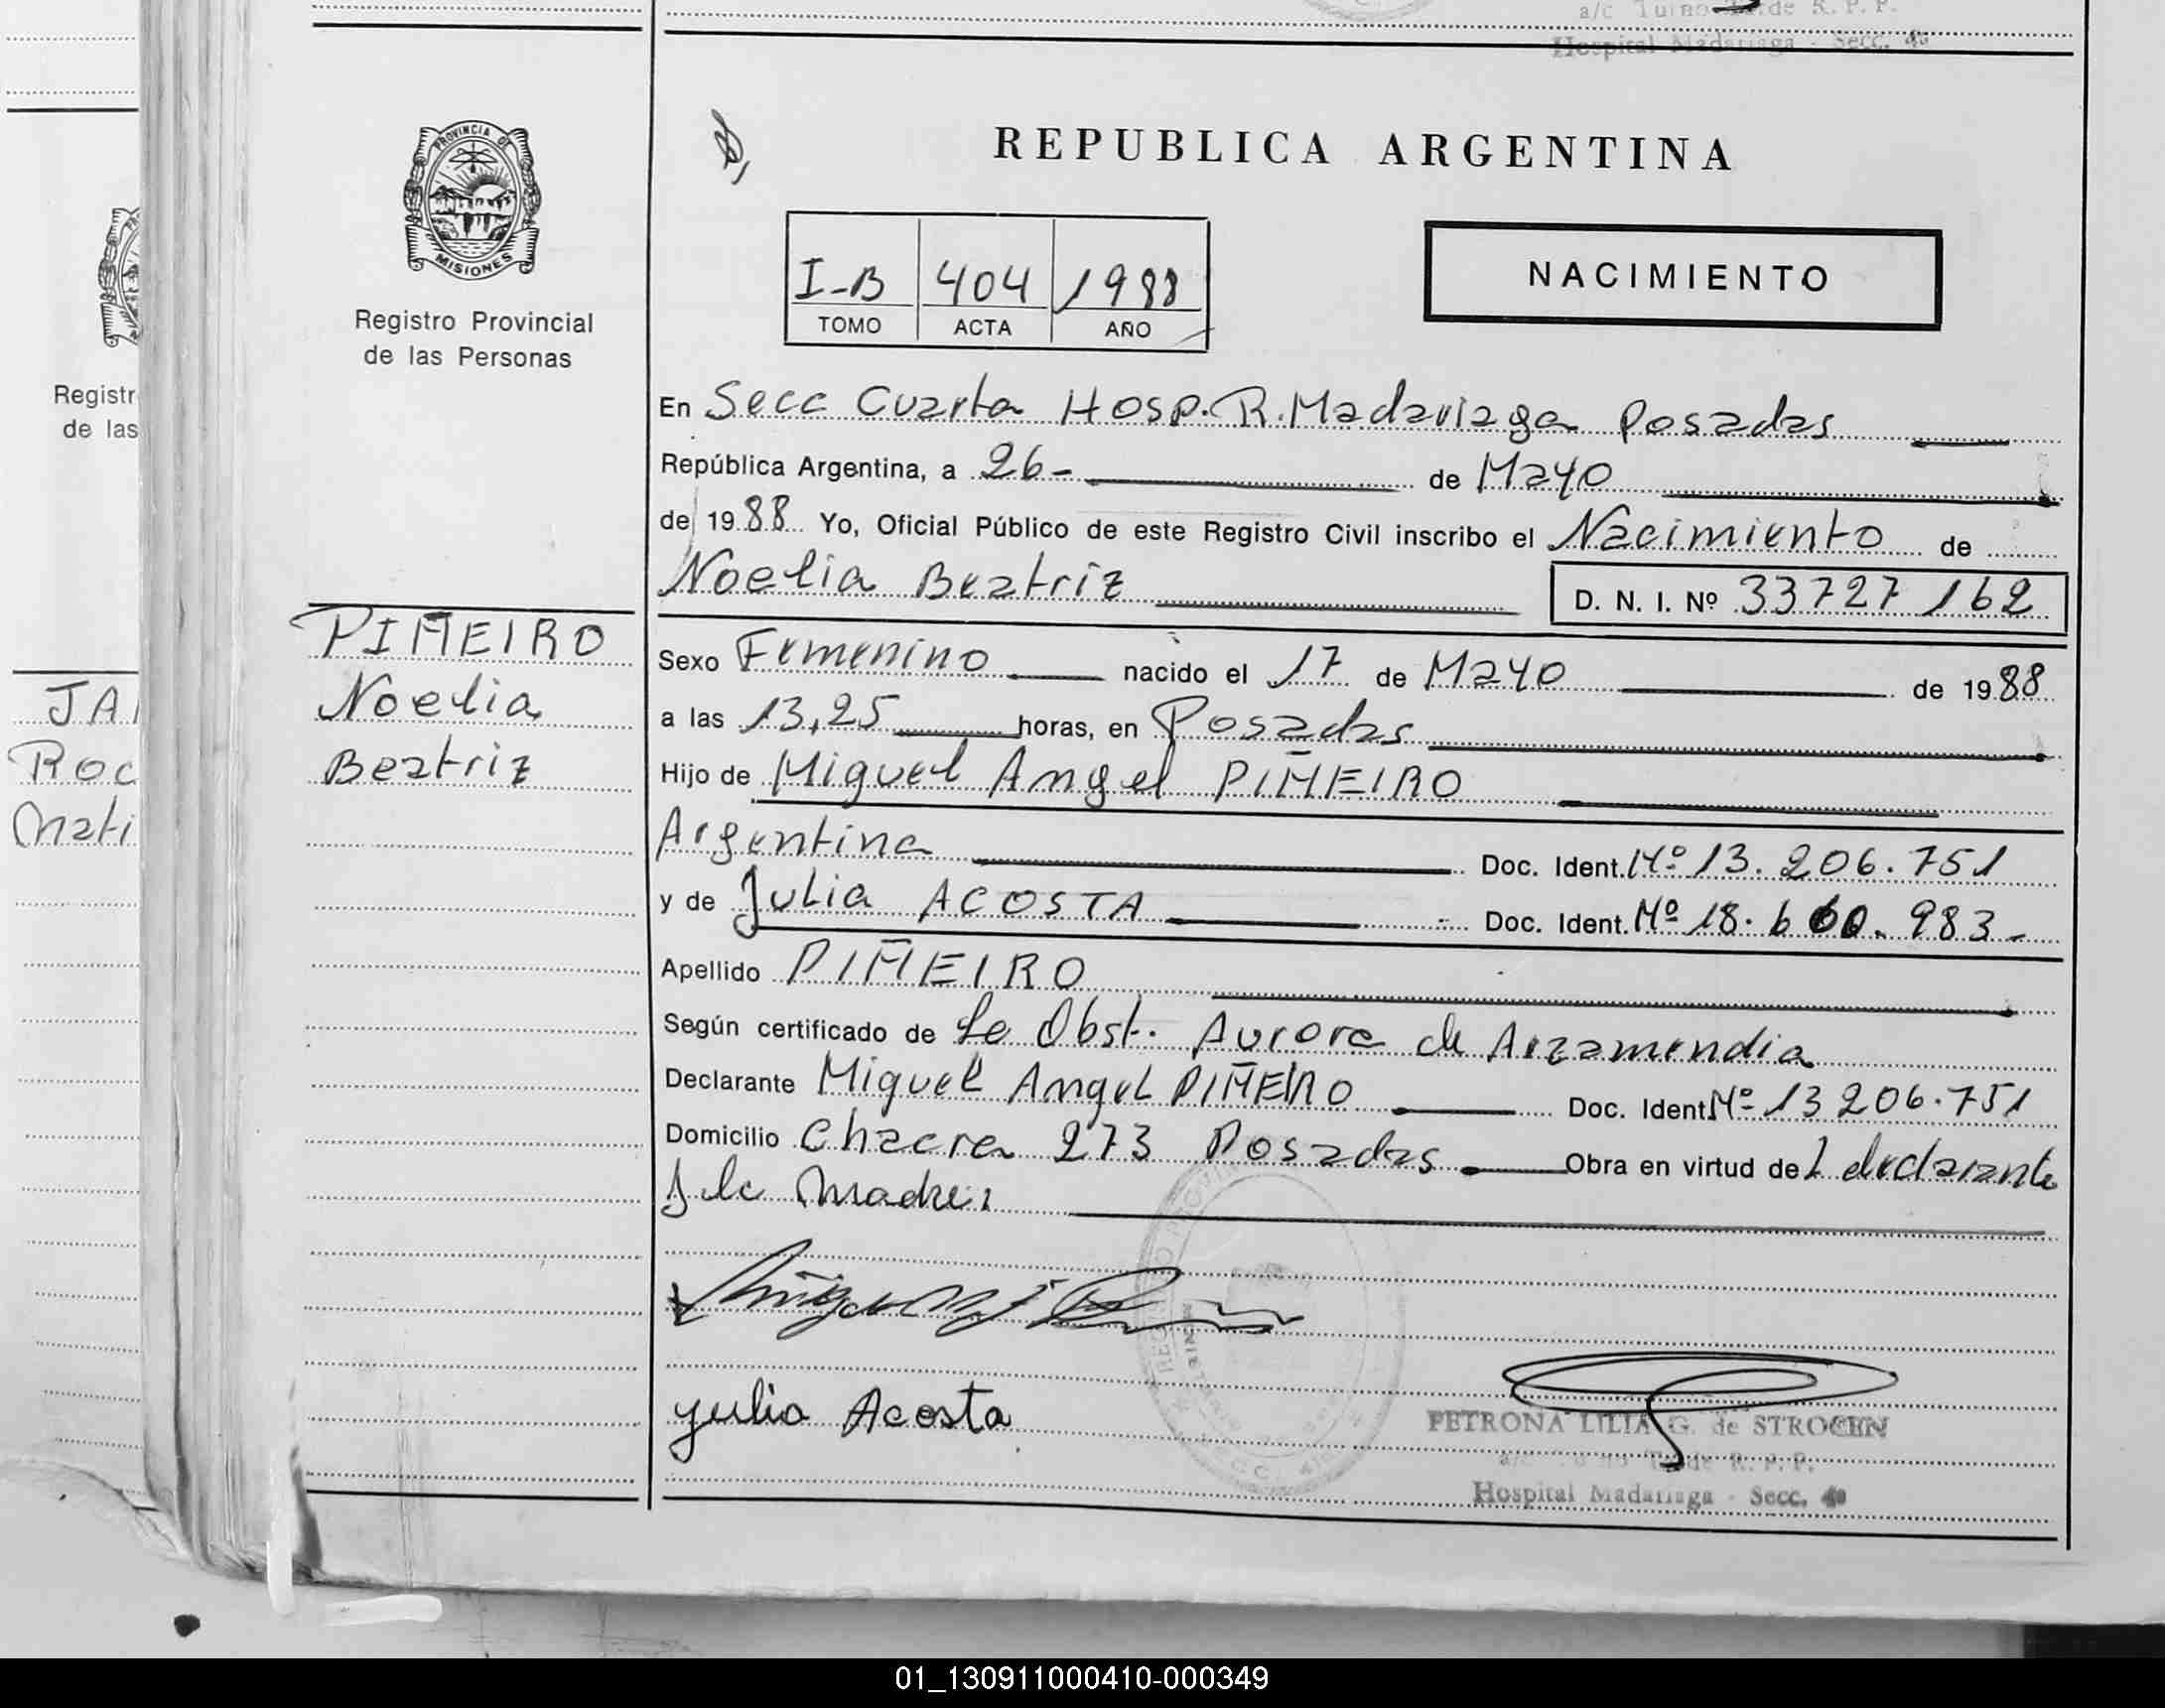 a/c Turno Tarde R. P. P.
Hospital Madariaga - Secc. 4a
PROVINCIA DE
MISIONES
Registro Provincial
de las Personas
REPUBLICA ARGENTINA
I-B 404 1988
TOMO ACTA AÑO
NACIMIENTO
Registr
de las
En Secc Cuarta Hosp. R. Madariaga Posadas
República Argentina, a 26- de Mayo
de 1988 Yo, Oficial Público de este Registro Civil inscribo el Nacimiento de
Noelia Beatriz D. N. I. Nº 33727162
PIÑEIRO
Noelia
Beatriz
JA
Roc
Mati
Sexo Femenino nacido el 17 de Mayo de 1988
a las 13,25 horas, en Posadas
Hijo de Miguel Angel PIÑEIRO
Argentina Doc. Ident. Nº 13.206.751
y de Julia ACOSTA Doc. Ident. Nº 18.660.983-
Apellido PIÑEIRO
Según certificado de La Obst. Aurora de Arzamendia
Declarante Miguel Angel PIÑEIRO Doc. Ident Nº 13 206.751
Domicilio Chacra 273 Posadas Obra en virtud del declarante
y la Madre:
Julia Acosta
PETRONA LILIA G. de STROCEN
a/c Turno Tarde R. P. P.
Hospital Madariaga - Secc. 4a
01_130911000410-000349